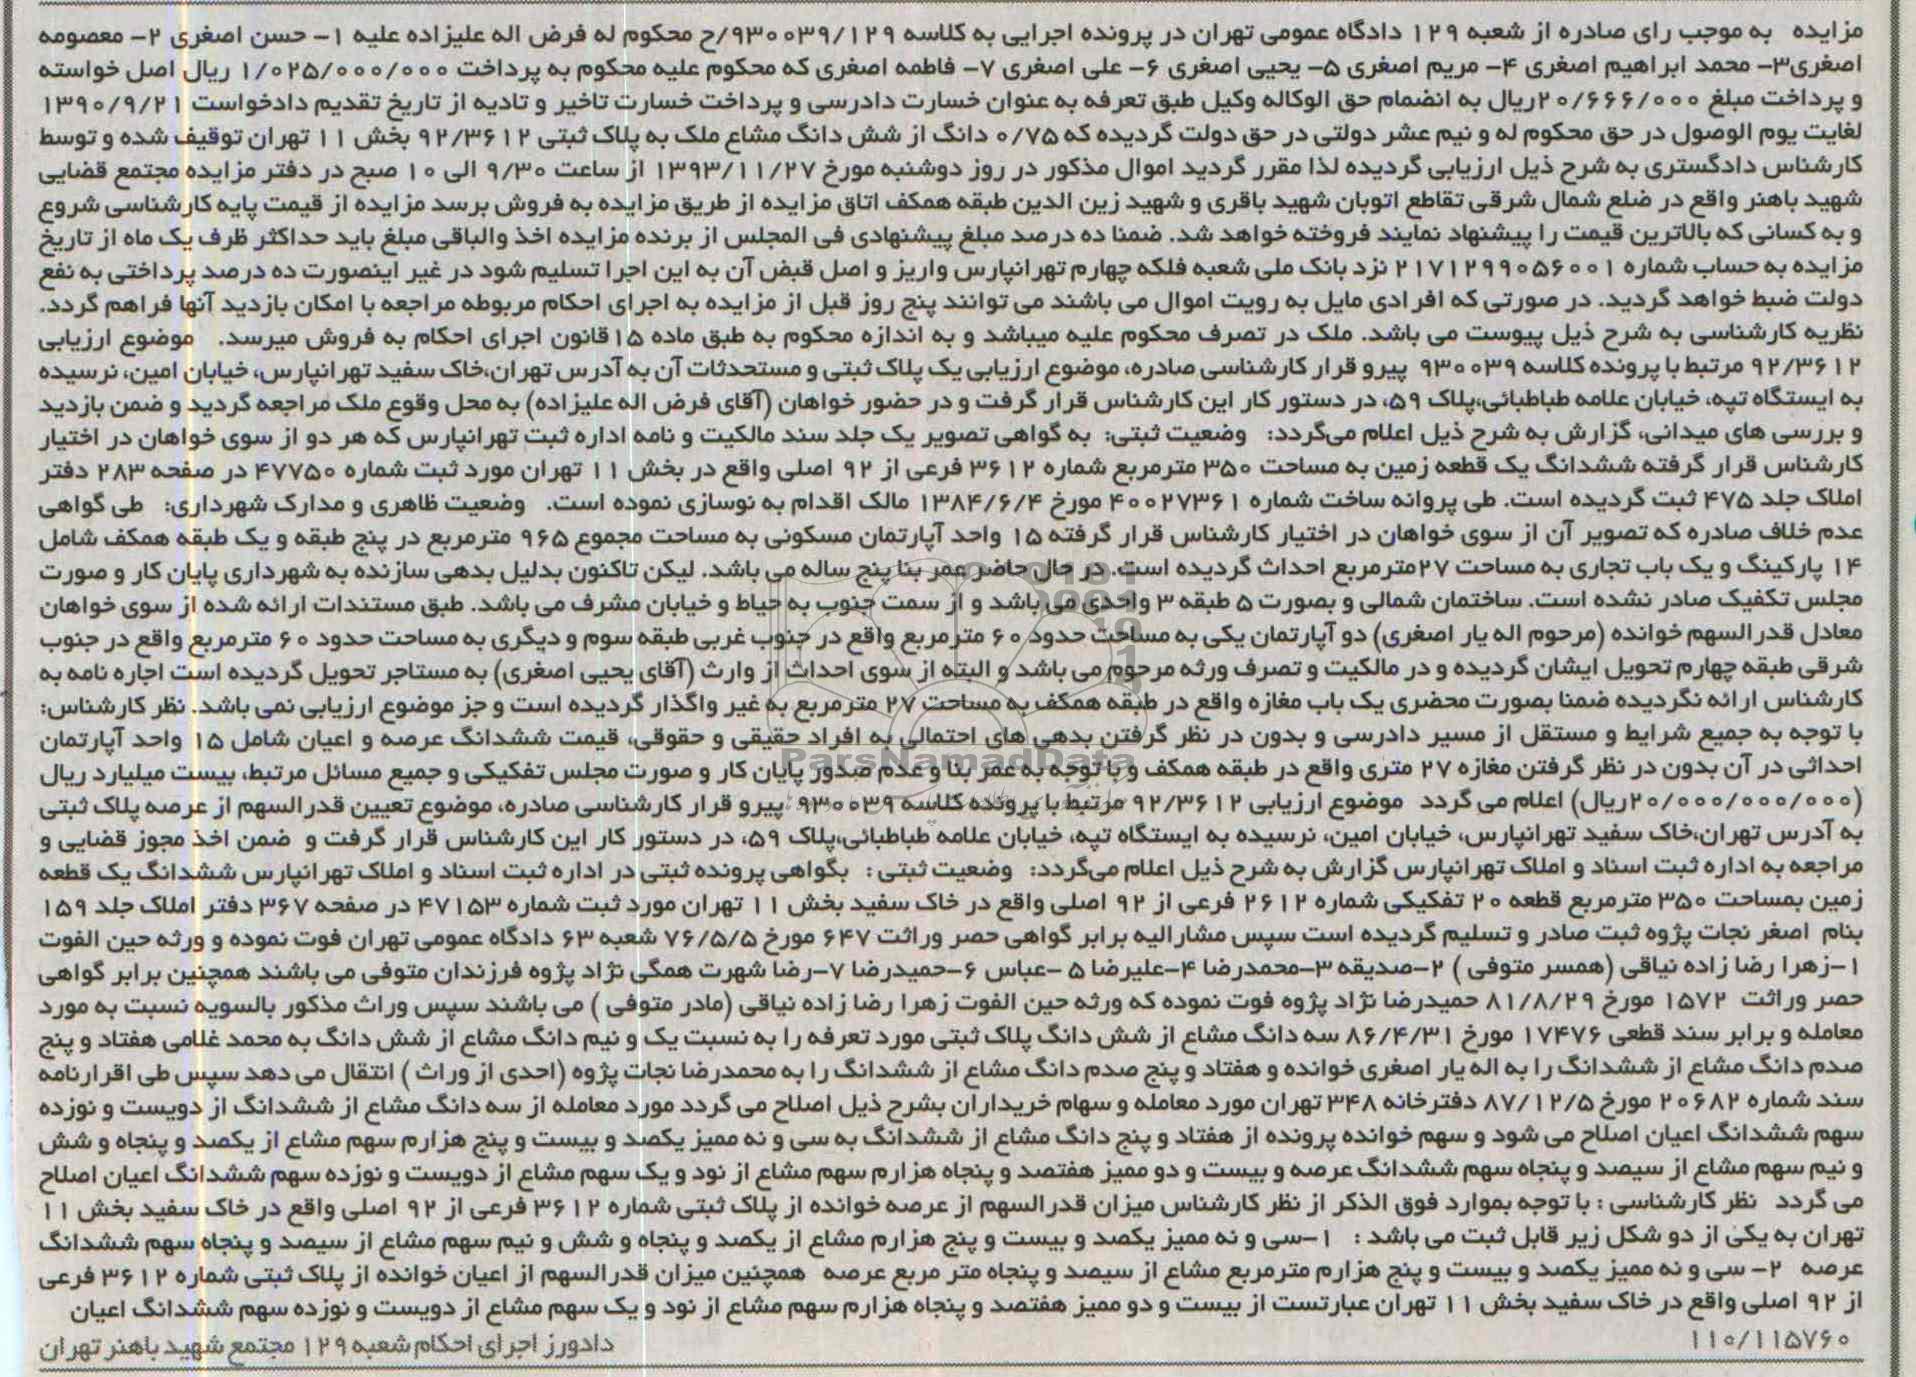 مزایده به موجب رای صادره از شعبه ۱۲۹ دادگاه عمومی تهران در پرونده اجرایی به کلاسه ۹۳۰۰۳۹/۱۲۹/ح محکوم له فرض اله علیزاده علیه ۱- حسن اصغری ۲- معصومه
اصغری۳- محمد ابراهیم اصغری ۴- مریم اصغری ۵- یحیی اصغری ۶- علی اصغری ۷- فاطمه اصغری که محکوم علیه محکوم به پرداخت ۱/۰۲۵/۰۰۰/۰۰۰ ریال اصل خواسته
و پرداخت مبلغ ۲۰/۶۶۶/۰۰۰ریال به انضمام حق الوکاله وکیل طبق تعرفه به عنوان خسارت دادرسی و پرداخت خسارت تاخیر و تادیه از تاریخ تقدیم دادخواست ۱۳۹۰/۹/۲۱
لغایت یوم الوصول در حق محکوم له و نیم عشر دولتی در حق دولت گردیده که ۰/۷۵ دانگ از شش دانگ مشاع ملک به پلاک ثبتی ۹۲/۳۶۱۲ بخش ۱۱ تهران توقیف شده و توسط
کارشناس دادگستری به شرح ذیل ارزیابی گردیده لذا مقرر گردید اموال مذکور در روز دوشنبه مورخ ۱۳۹۳/۱۱/۲۷ از ساعت ۹/۳۰ الی ۱۰ صبح در دفتر مزایده مجتمع قضایی
شهید باهنر واقع در ضلع شمال شرقی تقاطع اتوبان شهید باقری و شهید زین الدین طبقه همکف اتاق مزایده از طریق مزایده به فروش برسد مزایده از قیمت پایه کارشناسی شروع
و به کسانی که بالاترین قیمت را پیشنهاد نمایند فروخته خواهد شد. ضمنا ده درصد مبلغ پیشنهادی فی المجلس از برنده مزایده اخذ والباقی مبلغ باید حداکثر ظرف یک ماه از تاریخ
مزایده به حساب شماره ۲۱۷۱۲۹۹۰۵۶۰۰۱ نزد بانک ملی شعبه فلکه چهارم تهرانپارس واریز و اصل قبض آن به این اجرا تسلیم شود در غیر اینصورت ده درصد پرداختی به نفع
دولت ضبط خواهد گردید. در صورتی که افرادی مایل به رویت اموال می باشند می توانند پنج روز قبل از مزایده به اجرای احکام مربوطه مراجعه با امکان بازدید آنها فراهم گردد.
نظریه کارشناسی به شرح ذیل پیوست می باشد. ملک در تصرف محکوم علیه میباشد و به اندازه محکوم به طبق ماده ۱۵قانون اجرای احکام به فروش میرسد. موضوع ارزیابی
۹۲/۳۶۱۲ مرتبط با پرونده کلاسه ۹۳۰۰۳۹ پیرو قرار کارشناسی صادره، موضوع ارزیابی یک پلاک ثبتی و مستحدثات آن به آدرس تهران،خاک سفید تهرانپارس، خیابان امین، نرسیده
به ایستگاه تپه، خیابان علامه طباطبائی،پلاک ۵۹، در دستور کار این کارشناس قرار گرفت و در حضور خواهان (آقای فرض اله علیزاده) به محل وقوع ملک مراجعه گردید و ضمن بازدید
و بررسی های میدانی، گزارش به شرح ذیل اعلام می‌گردد: وضعیت ثبتی: به گواهی تصویر یک جلد سند مالکیت و نامه اداره ثبت تهرانپارس که هر دو از سوی خواهان در اختیار
کارشناس قرار گرفته ششدانگ یک قطعه زمین به مساحت ۳۵۰ مترمربع شماره ۳۶۱۲ فرعی از ۹۲ اصلی واقع در بخش ۱۱ تهران مورد ثبت شماره ۴۷۷۵۰ در صفحه ۲۸۳ دفتر
املاک جلد ۴۷۵ ثبت گردیده است. طی پروانه ساخت شماره ۴۰۰۲۷۳۶۱ مورخ ۱۳۸۴/۶/۴ مالک اقدام به نوسازی نموده است. وضعیت ظاهری و مدارک شهرداری: طی گواهی
عدم خلاف صادره که تصویر آن از سوی خواهان در اختیار کارشناس قرار گرفته ۱۵ واحد آپارتمان مسکونی به مساحت مجموع ۹۶۵ مترمربع در پنج طبقه و یک طبقه همکف شامل
۱۴ پارکینگ و یک باب تجاری به مساحت ۲۷مترمربع احداث گردیده است. در حال حاضر عمر بنا پنج ساله می باشد. لیکن تاکنون بدلیل بدهی سازنده به شهرداری پایان کار و صورت
مجلس تکفیک صادر نشده است. ساختمان شمالی و بصورت ۵ طبقه ۳ واحدی می باشد و از سمت جنوب به حیاط و خیابان مشرف می باشد. طبق مستندات ارائه شده از سوی خواهان
معادل قدرالسهم خوانده (مرحوم اله یار اصغری) دو آپارتمان یکی به مساحت حدود ۶۰ مترمربع واقع در جنوب غربی طبقه سوم و دیگری به مساحت حدود ۶۰ مترمربع واقع در جنوب
شرقی طبقه چهارم تحویل ایشان گردیده و در مالکیت و تصرف ورثه مرحوم می باشد و البته از سوی احداث از وارث (آقای یحیی اصغری) به مستاجر تحویل گردیده است اجاره نامه به
کارشناس ارائه نگردیده ضمنا بصورت محضری یک باب مغازه واقع در طبقه همکف به مساحت ۲۷ مترمربع به غیر واگذار گردیده است و جز موضوع ارزیابی نمی باشد. نظر کارشناس:
با توجه به جمیع شرایط و مستقل از مسیر دادرسی و بدون در نظر گرفتن بدهی های احتمالی به افراد حقیقی و حقوقی، قیمت ششدانگ عرصه و اعیان شامل ۱۵ واحد آپارتمان
احداثی در آن بدون در نظر گرفتن مغازه ۲۷ متری واقع در طبقه همکف و با توجه به عمر بنا و عدم صدور پایان کار و صورت مجلس تفکیکی و جمیع مسائل مرتبط، بیست میلیارد ریال
(۲۰/۰۰۰/۰۰۰/۰۰۰ریال) اعلام می گردد موضوع ارزیابی ۹۲/۳۶۱۲ مرتبط با پرونده کلاسه ۹۳۰۰۳۹ پیرو قرار کارشناسی صادره، موضوع تعیین قدرالسهم از عرصه پلاک ثبتی
به آدرس تهران،خاک سفید تهرانپارس، خیابان امین، نرسیده به ایستگاه تپه، خیابان علامه طباطبائی،پلاک ۵۹، در دستور کار این کارشناس قرار گرفت و ضمن اخذ مجوز قضایی و
مراجعه به اداره ثبت اسناد و املاک تهرانپارس گزارش به شرح ذیل اعلام می‌گردد: وضعیت ثبتی : بگواهی پرونده ثبتی در اداره ثبت اسناد و املاک تهرانپارس ششدانگ یک قطعه
زمین بمساحت ۳۵۰ مترمربع قطعه ۲۰ تفکیکی شماره ۲۶۱۲ فرعی از ۹۲ اصلی واقع در خاک سفید بخش ۱۱ تهران مورد ثبت شماره ۴۷۱۵۳ در صفحه ۳۶۷ دفتر املاک جلد ۱۵۹
بنام اصغر نجات پژوه ثبت صادر و تسلیم گردیده است سپس مشارالیه برابر گواهی حصر وراثت ۶۴۷ مورخ ۷۶/۵/۵ شعبه ۶۳ دادگاه عمومی تهران فوت نموده و ورثه حین الفوت
۱-زهرا رضا زاده نیاقی (همسر متوفی ) ۲-صدیقه ۳-محمدرضا ۴-علیرضا ۵ -عباس ۶-حمیدرضا ۷-رضا شهرت همگی نژاد پژوه فرزندان متوفی می باشند همچنین برابر گواهی
حصر وراثت ۱۵۷۲ مورخ ۸۱/۸/۲۹ حمیدرضا نژاد پژوه فوت نموده که ورثه حین الفوت زهرا رضا زاده نیاقی (مادر متوفی ) می باشند سپس وراث مذکور بالسویه نسبت به مورد
معامله و برابر سند قطعی ۱۷۴۷۶ مورخ ۸۶/۴/۳۱ سه دانگ مشاع از شش دانگ پلاک ثبتی مورد تعرفه را به نسبت یک و نیم دانگ مشاع از شش دانگ به محمد غلامی هفتاد و پنج
صدم دانگ مشاع از ششدانگ را به اله یار اصغری خوانده و هفتاد و پنج صدم دانگ مشاع از ششدانگ را به محمدرضا نجات پژوه (احدی از وراث ) انتقال می دهد سپس طی اقرارنامه
سند شماره ۲۰۶۸۲ مورخ ۸۷/۱۲/۵ دفترخانه ۳۴۸ تهران مورد معامله و سهام خریداران بشرح ذیل اصلاح می گردد مورد معامله از سه دانگ مشاع از ششدانگ از دویست و نوزده
سهم ششدانگ اعیان اصلاح می شود و سهم خوانده پرونده از هفتاد و پنج دانگ مشاع از ششدانگ به سی و نه ممیز یکصد و بیست و پنج هزارم سهم مشاع از یکصد و پنجاه و شش
و نیم سهم مشاع از سیصد و پنجاه سهم ششدانگ عرصه و بیست و دو ممیز هفتصد و پنجاه هزارم سهم مشاع از نود و یک سهم مشاع از دویست و نوزده سهم ششدانگ اعیان اصلاح
می گردد نظر کارشناسی : با توجه بموارد فوق الذکر از نظر کارشناس میزان قدرالسهم از عرصه خوانده از پلاک ثبتی شماره ۳۶۱۲ فرعی از ۹۲ اصلی واقع در خاک سفید بخش ۱۱
تهران به یکی از دو شکل زیر قابل ثبت می باشد : ۱-سی و نه ممیز یکصد و بیست و پنج هزارم مشاع از یکصد و پنجاه و شش و نیم سهم مشاع از سیصد و پنجاه سهم ششدانگ
عرصه ۲- سی و نه ممیز یکصد و بیست و پنج هزارم مترمربع مشاع از سیصد و پنجاه متر مربع عرصه همچنین میزان قدرالسهم از اعیان خوانده از پلاک ثبتی شماره ۳۶۱۲ فرعی
از ۹۲ اصلی واقع در خاک سفید بخش ۱۱ تهران عبارتست از بیست و دو ممیز هفتصد و پنجاه هزارم سهم مشاع از نود و یک سهم مشاع از دویست و نوزده سهم ششدانگ اعیان
۱۱۰/۱۱۵۷۶۰ دادورز اجرای احکام شعبه ۱۲۹ مجتمع شهید باهنر تهران
ParsNamadData